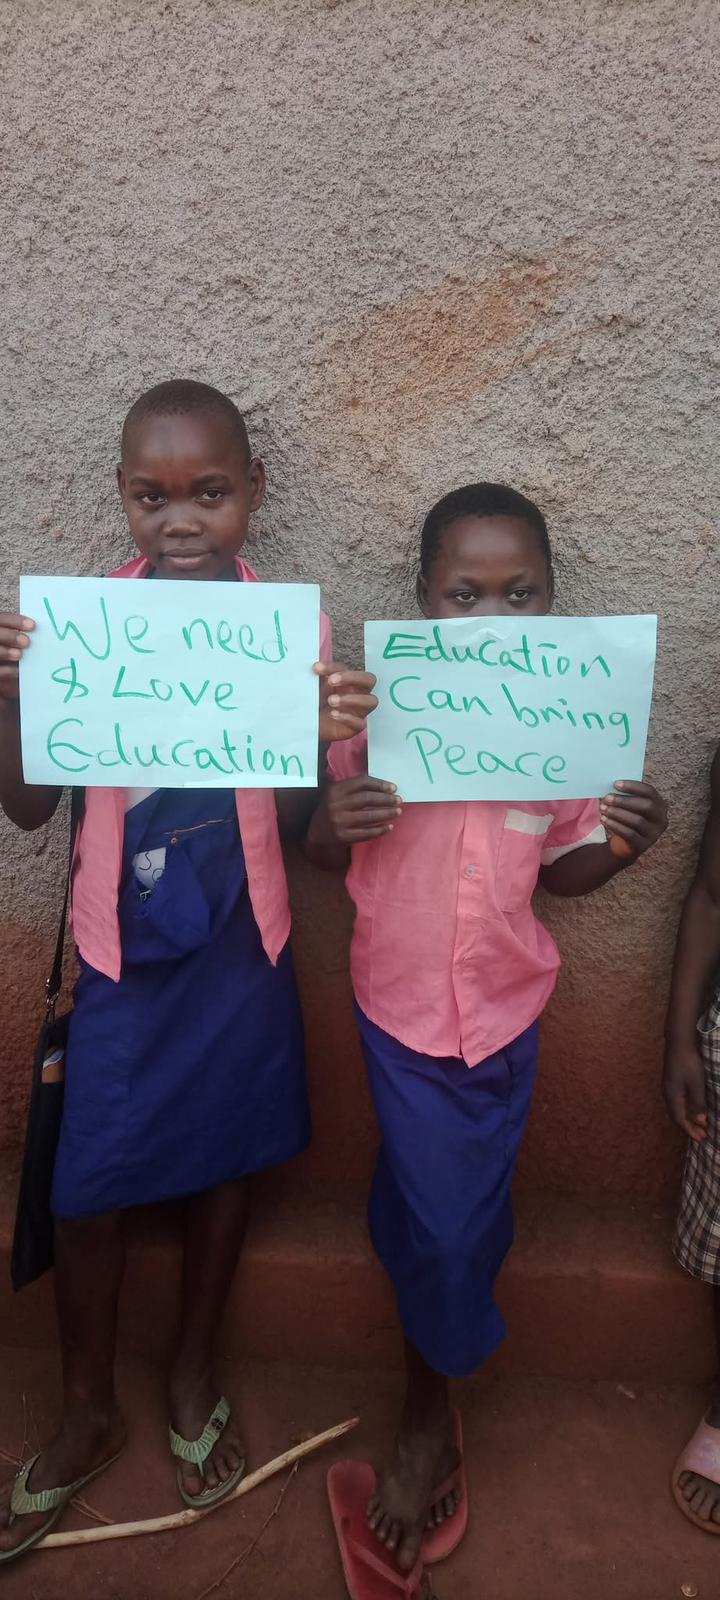 We need
& Love
Education
Education
Can bring
Peace